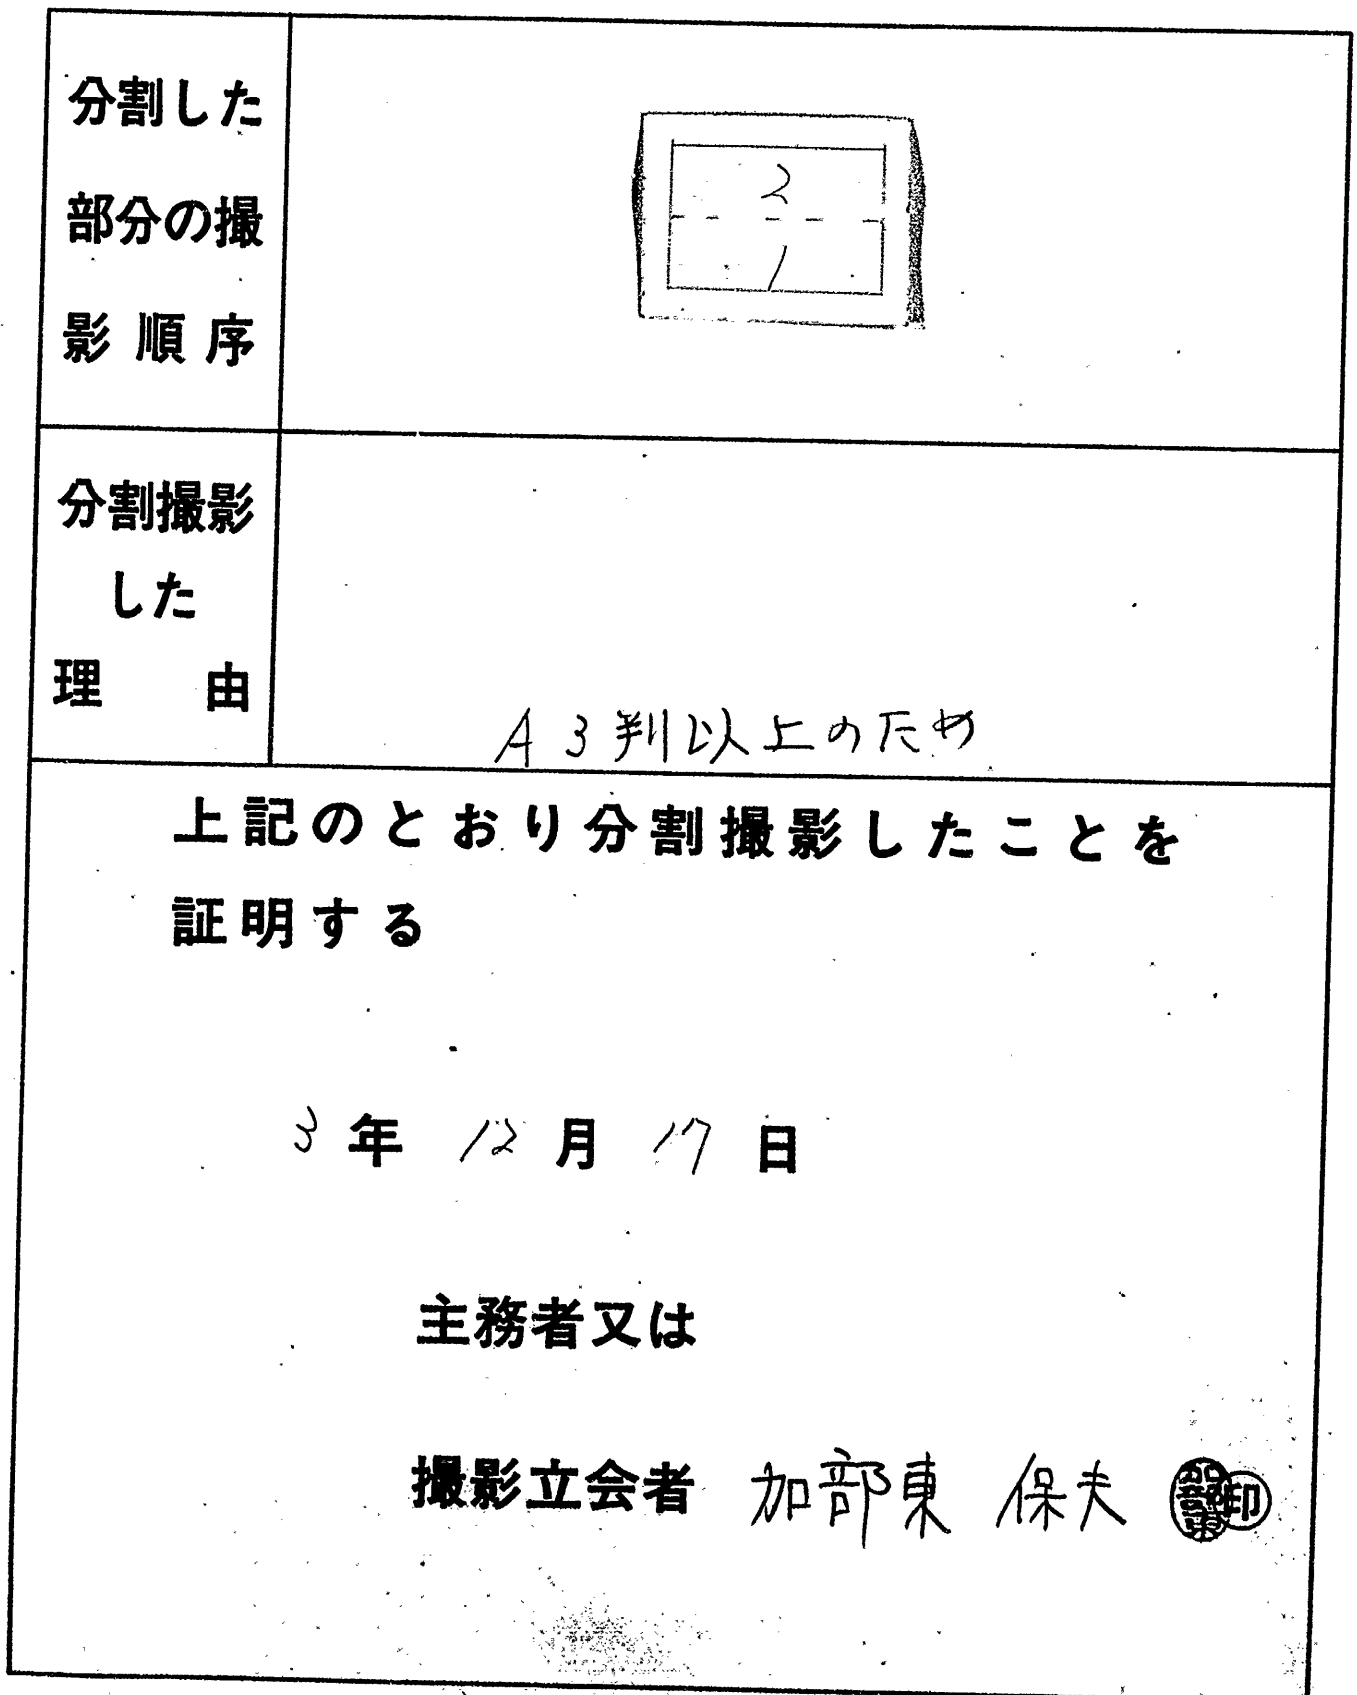 分割した
部分の撮
影順序
2
1
分割撮影
した
理由
A3判以上のため
上記のとおり分割撮影したことを
証明する
3年12月17日
主務者又は
撮影立会者 加部東 保夫 加部東 印